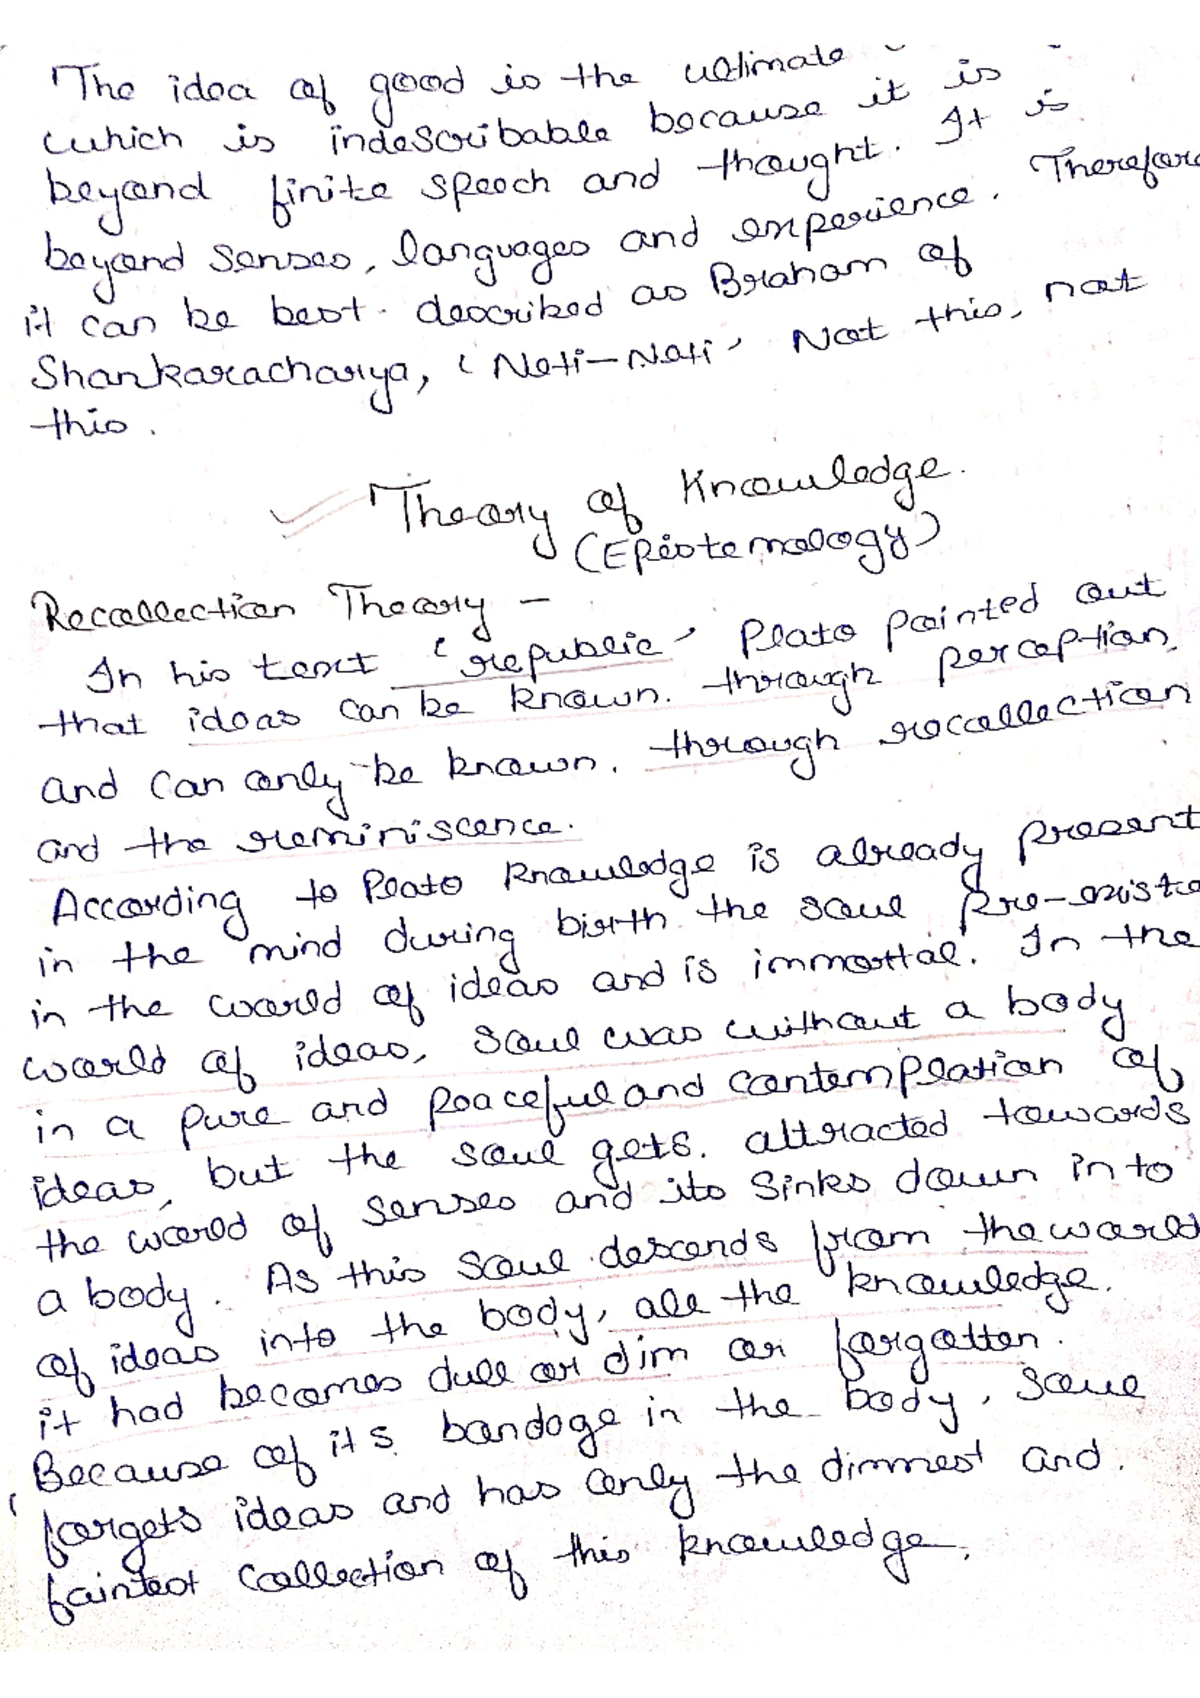 The idea of good is the ultimate
which is indescribable because it is
beyond finite speech and thought. It is
beyond senses, languages and experience. Therefore
it can be best. described as Braham of
Shankaracharya, 'Neti-Neti' Not this, not
this.
Theory of Knowledge.
(Epistemology)
Recollection Theory -
In his text 'republic' Plato pointed out
that ideas can be known. through perception,
and can only be known. through recollection
and the reminiscence.
According to Plato knowledge is already present
in the mind during birth. the soul pre-exists
in the world of ideas and is immortal. In the
world of ideas, soul was without a body
in a pure and peaceful and contemplation of
ideas, but the soul gets. attracted towards
the world of senses and its sinks down into
a body. As this soul descends from the world
of ideas into the body, all the knowledge.
it had becomes dull or dim or forgotten.
Because of its bondage in the body, soul
forgets ideas and has only the dimmest and.
faintest collection of this knowledge.